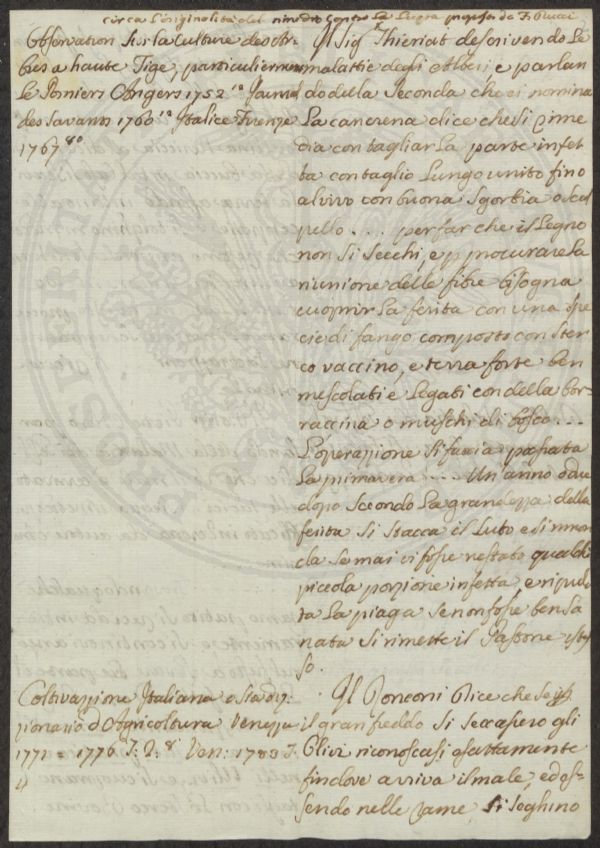 circa l'originalità del rimedio contro la Lupra proposto da F. Bucci
Observation sur la Culture des Ar-
bres a haute Tige, particulierment
le Pomiers Angers 1752 12 Journal
des Savants 1760 12 Italice Firenze
1767 8°
Il Sig. Thieriat descrivendo le
malattie degli Alberi e parlan
do della Seconda che ei nomina
La cancrena dice che si rime
dia con tagliar la parte infet
ta con taglio Lungo unito fino
al vivo con buona Sgorbia o Scal
pello .... per far che il Legno
non Si Secchi, e p procurare la
riunione delle fibre bisogna
cuoprir la ferita con una spe
cie di fango composto con Ster
co vaccino, e terra forte ben
mescolati e Legati con della bor-
raccina o muschi di bosco ....
L'operazione Si faccia passata
La primavera .... Un anno o due
dopo Secondo La grandezza della
ferita Si Stacca il Luto e Si mon
da Se mai vi fosse restata qualche
piccola porzione infetta, e ripuli
ta La piaga Se non fosse ben Sa
nata Si rimette il Pastone istes
so.
Coltivazzione Italiana o sia diz-
zionario d'Agricoltura Venezia
1771 = 1776 T. 2. 8 Ven: 1783 T.
Il Ronconi Dice che Se p
il gran freddo Si Seccassero gli
Olivi riconoscasi esattamente
fin dove arriva il male, ed es-
sendo nelle rame, Si Seghino